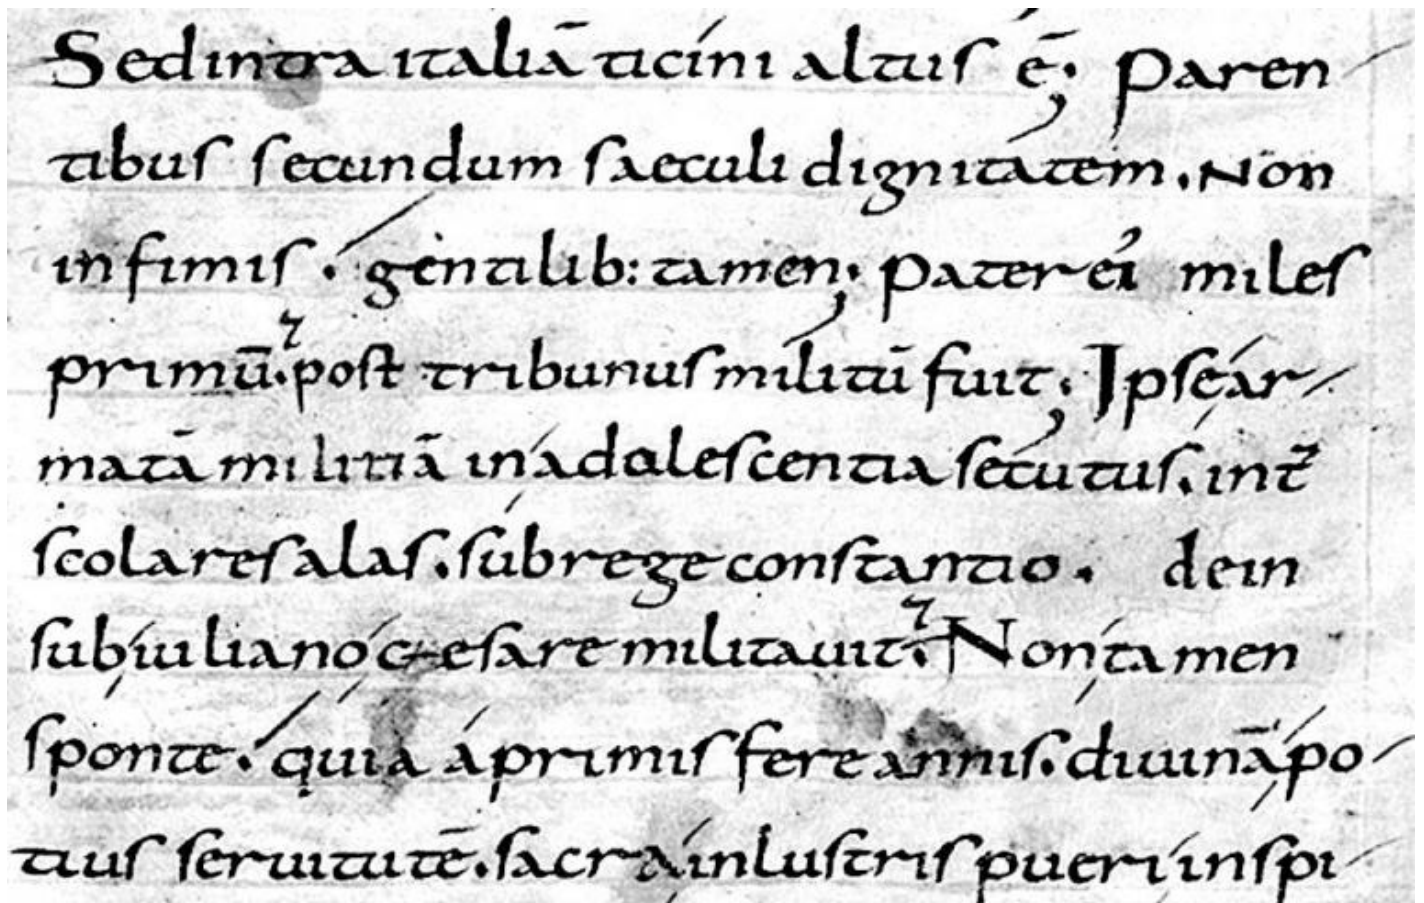 Sed intra italiā ticini altus ē; Paren
tibus secundum saeculi dignitatem. Non
infimis. gentilib: tamen; Pater eiʼ miles
primū. post tribunus militū fuit; Ipse ar
matā militiā in adolescentia secutus. int̄
scolares alas. sub rege constantio. dein
sub iuliano cęsare militauit. Non tamen
sponte. quia a primis fere annis. diuinā po
tius seruitutē. sacra inlustris pueri inspi